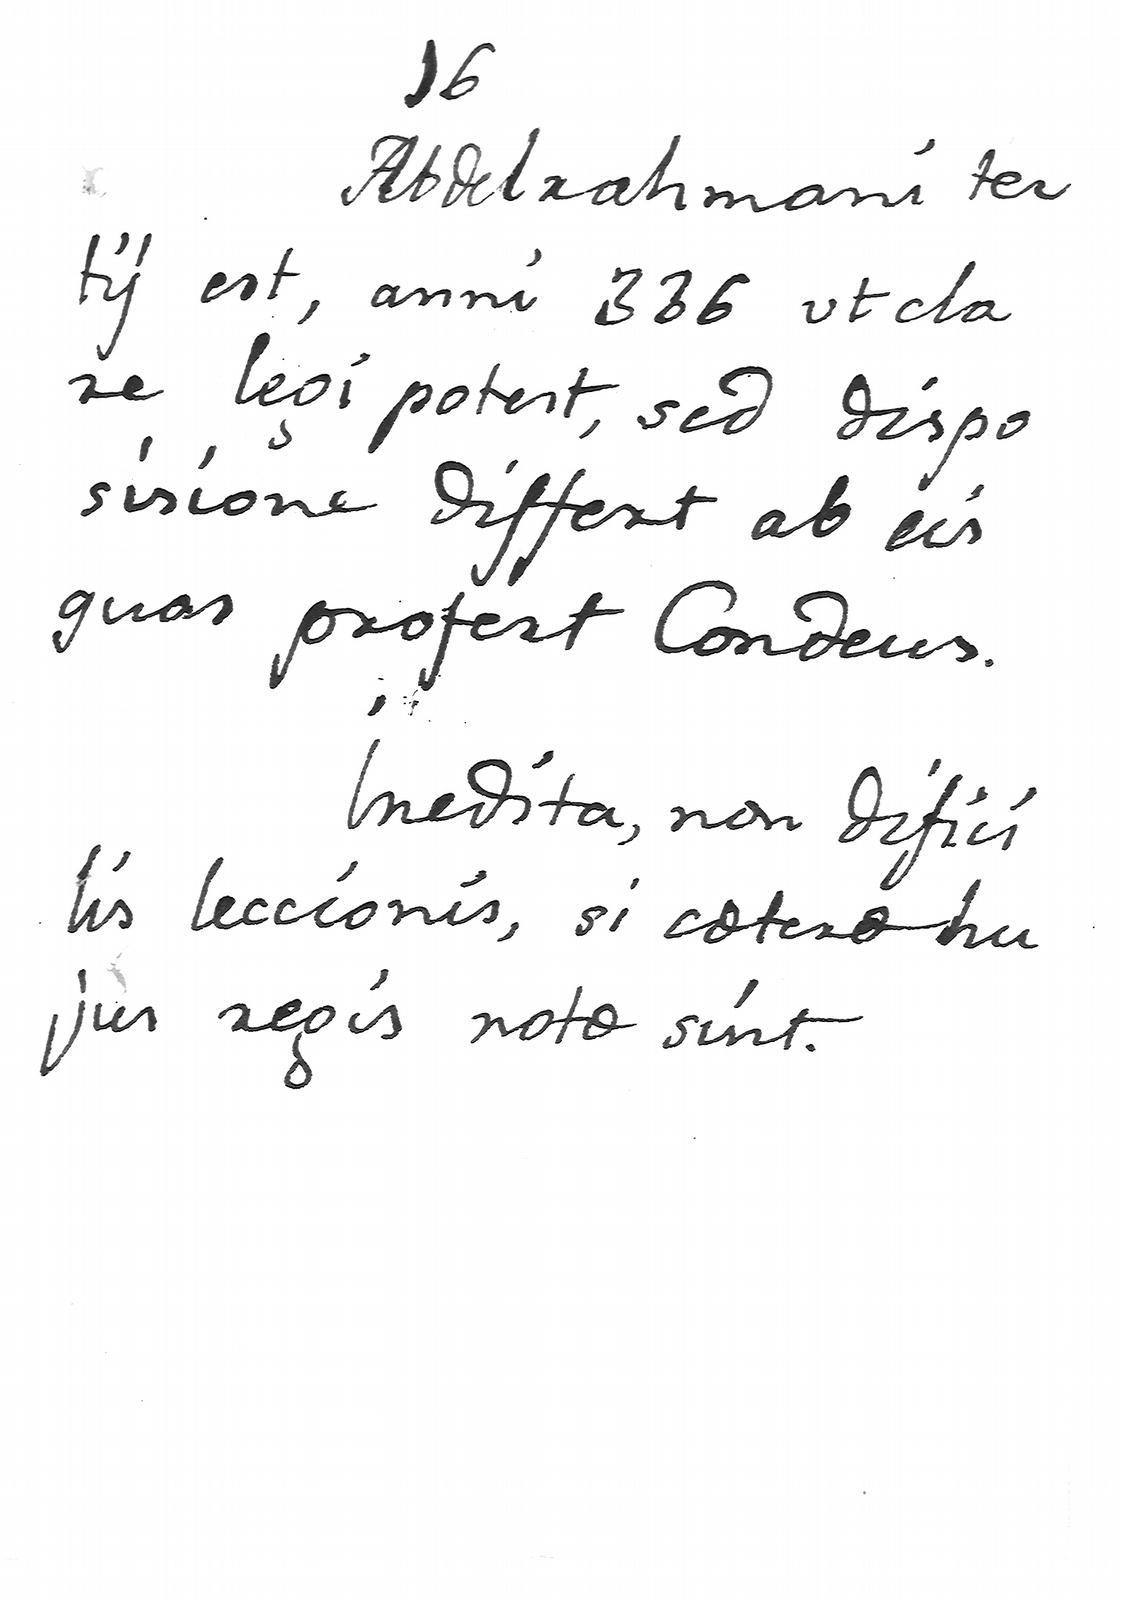 16
Abdelrahmani ter
tij est, anni 336 ut cla
re legi potest, sed dispo
sisione differt ab eis
quas profert Condeus.
Inedita, non difici
lis leccionis, si cæteræ hu
jus regis notæ sint.